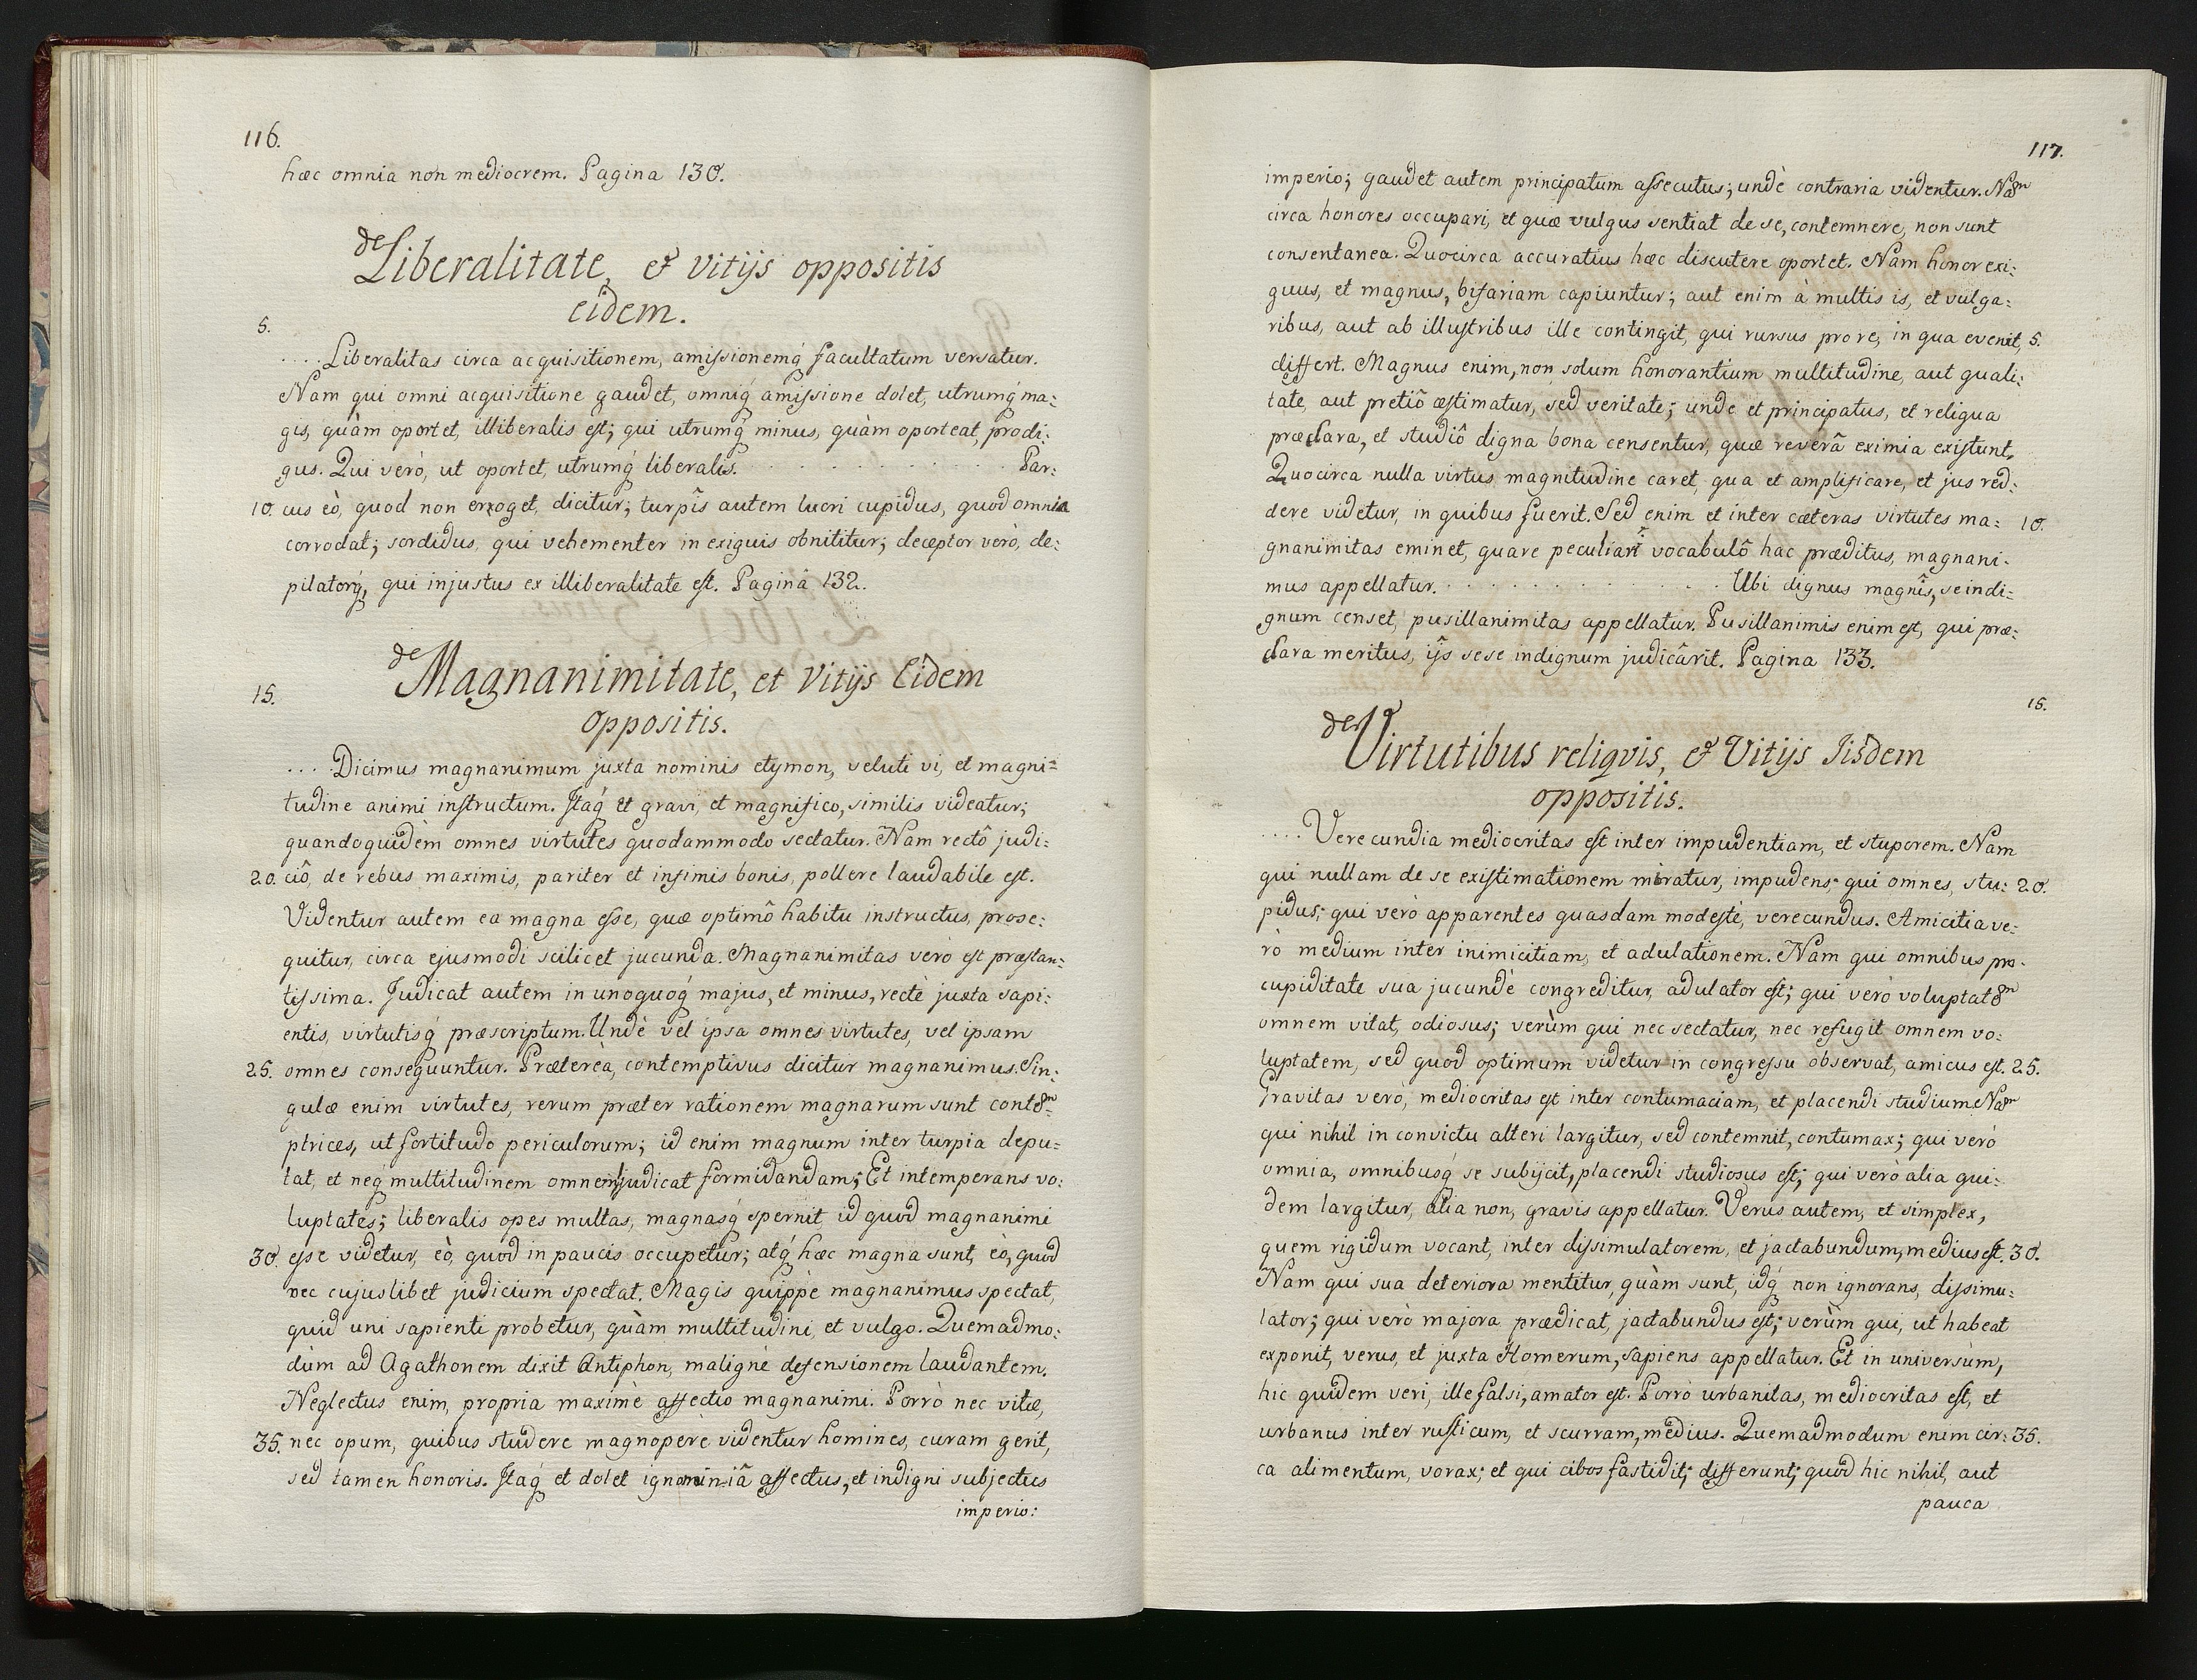 116.
hæc omnia non mediocrem. Pagina 130.
de Liberalitate, et vitijs oppositis
eidem.
5.
.... Liberalitas circa acquisitionem, amissionemq́ facultatum versatur.
Nam qui omni acquisitione gaudet, omniq́ amissione dolet, utrumq́ ma:
gis, quàm oportet, illiberalis est; qui utrumq́ minus, quàm oporteat, prodi:
gus. Qui verò, ut oportet, utrumq́ liberalis. . . . . . . . . . . . . Par:
10. cus eò, quod non erroget, dicitur; turpîs autem lucri cupidus, quod omnia
corrodat; sordidus, qui vehementer in exiguis obnititur; deceptor verò, de:
pilatorq́, qui injustus ex illiberalitate est. Paginâ 132.
de Magnanimitate, et Vitijs Eidem
15.
oppositis.
.... Dicimus magnanimum juxta nominis etymon, veluti vi, et magni:
tudine animi instructum. Itaq́ et gravi, et magnifico, similis videatur;
quandoquidèm omnes virtutes quodammodo sectatur. Nam rectô judi:
20. ciô, de rebus maximis, pariter et infimis bonis, pollere laudabile est.
Videntur autem ea magna esse, quæ optimô habitu instructus, prose:
quitur, circa ejusmodi scilicet jucunda. Magnanimitas verò est præstan:
tissima. Judicat autem in unoquoq́ majus, et minus, rectè juxta sapi:
entis, virtutisq́ præscriptum. Undè vel ipsa omnes virtutes, vel ipsam
25. omnes consequuntur. Prætereà, contemptivus dicitur magnanimus. Sin:
gulæ enim virtutes, rerum præter rationem magnarum sunt contem:
ptrices, ut fortitudo periculorum; id enim magnum inter turpia depu:
tat, et neq́ multitudinem omnem judicat formidandam; Et intemperans vo:
luptates; liberalis opes multas, magnasq́ spernit, id quod magnanimi
30. esse videtur, èò, quod in paucis occupetur; atq́ hæc magna sunt, èò, quod
nec cujuslibet judicium spectat. Magis quippè magnanimus spectat,
quid uni sapienti probetur, quàm multitudini, et vulgo. Quemadmo:
dùm ad Agathonem dixit Antiphon, malignè defensionem laudantem.
Neglectus enim, propria maximè affectio magnanimi. Porrò nec vitæ,
35. nec opum, quibus studere magnoperè videntur homines, curam gerit,
sed tamen honoris. Itaq́ et dolet ignominiâ affectus, et indigni subjectus
imperio:
117.
imperio; gaudet autem principatum assecutus; undè contraria videntur. Nam
circa honores occupari, et quæ vulgus sentiat de se, contemnere, non sunt
consentanea. Quocirca accuratius hæc discutere oportet. Nam honor exi:
guus, et magnus, bifariam capiuntur; aut enim à multis is, et vulga:
ribus, aut ab illustribus ille contingit, qui rursus pro re, in qua evenit, 5.
differt. Magnus enim, non solum honorantium multitudine, aut quali:
tate, aut pretiô æstimatur, sed veritate; unde et principatus, et reliqua
præclara, et studiô digna bona censentur, quæ reverâ eximia existunt.
Quocirca nulla virtus magnitudine caret, qua et amplificare, et jus red:
dere videtur, in quibus fuerit. Sed enim et inter cæteras virtutes ma: 10.
gnanimitas eminet, quare peculiarî vocabulô hac præditus, magnani.
mus appellatur. . . . . . . . . . . . . Ubi dignus magnîs, se indi:
gnum censet, pusillanimitas appellatur. Pusillanimis enim est, qui præ:
clara meritus, ijs sese indignum judicârit. Pagina 133.
15.
de Virtutibus reliqvis, et Vitijs Iisdem
oppositis.
.... Verecundia mediocritas est inter impudentiam, et stuporem. Nam
qui nullam de se existimationem miratur, impudens; qui omnes, stu: 20.
pidus; qui verò apparentes quasdam modestè, verecundus. Amicitia ve:
rò medium inter inimicitiam, et adulationem. Nam qui omnibus pro.
cupiditate sua jucundè congreditur, adulator est; qui verò voluptatem
omnem vitat, odiosus; verùm qui nec sectatur, nec refugit omnem vo:
luptatem, sed quod optimum videtur in congressu observat, amicus est. 25.
Gravitas verò, mediocritas est inter contumaciam, et placendi studium. Nam
qui nihil in convictu alteri largitur, sed contemnit, contumax; qui verò
omnia, omnibusq́ se subijcit, placendi studiosus est; qui verò alia qui:
dem largitur, alia non, gravis appellatur. Verus autem, et simplex,
quem rigidum vocant, inter dissimulatorem, et jactabundum, medius est. 30.
Nam qui sua deteriora mentitur, quàm sunt, idq́ non ignorans, dissimu:
lator; qui verò majora prædicat, jactabundus est; verùm qui, ut habeat
exponit, verus, et juxta Homerum, sapiens appellatur. Et in universùm,
hic quidem veri, ille falsi, amator est. Porrò urbanitas, mediocritas est, et
urbanus inter rusticum, et scurram, medius. Quemadmodum enim cir: 35.
ca alimentum, vorax; et qui cibos fastidit; differunt; quòd hic nihil, aut
pauca